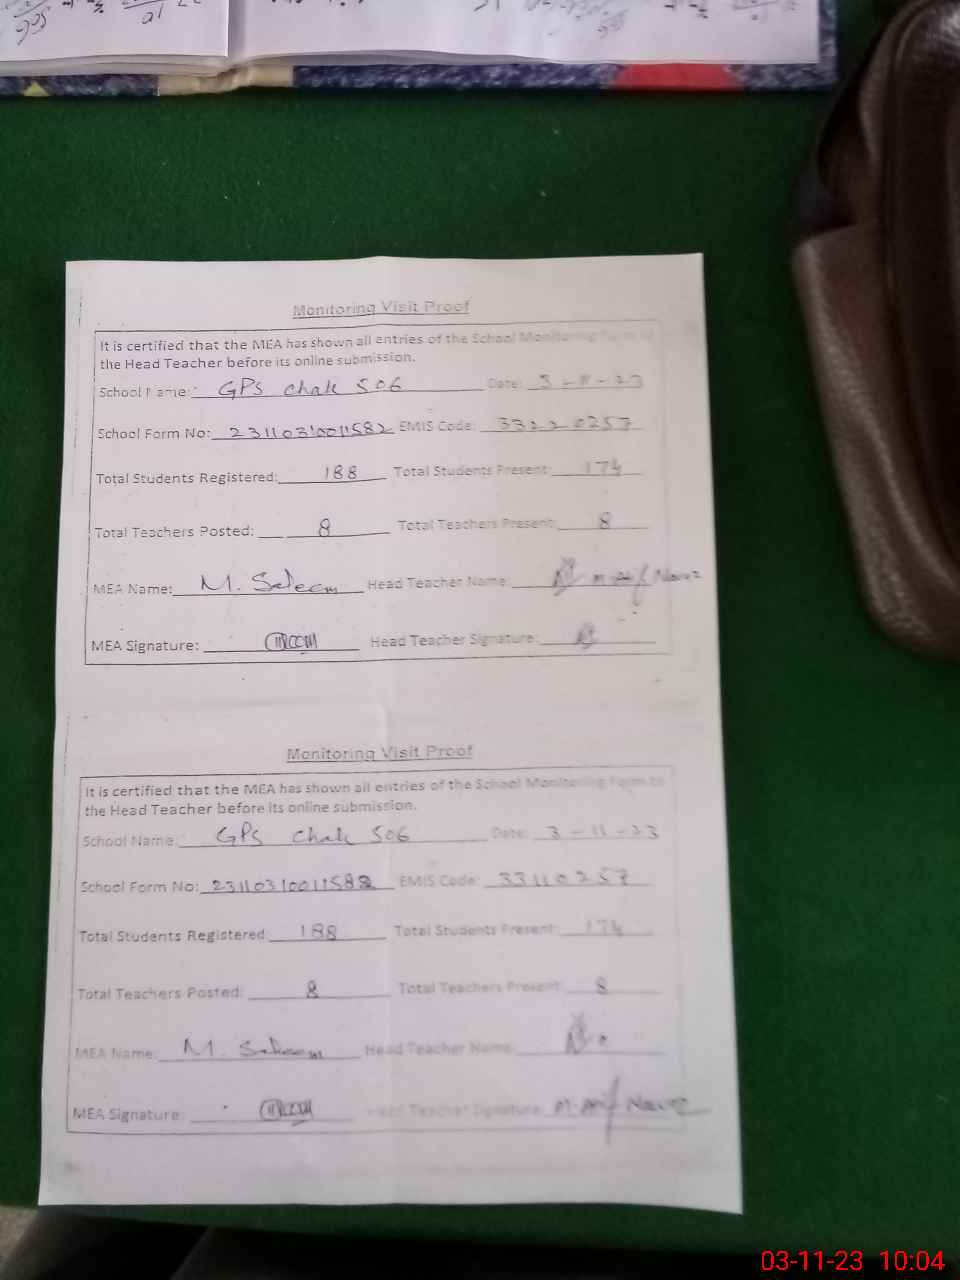 Monitoring Visit Proof
It is certified that the MEA has shown all entries of the School Monitoring Form to
the Head Teacher before its online submission.
School Name: GPS Chak 506 Date: 3-11-23
School Form No: 23110310011582 EMIS Code: 33220257
Total Students Registered: 188 Total Students Present: 174
Total Teachers Posted: 8 Total Teachers Present: 8
MEA Name: M. Saleem Head Teacher Name: M. Arif Nawaz
MEA Signature: Head Teacher Signature:
Monitoring Visit Proof
It is certified that the MEA has shown all entries of the School Monitoring Form to
the Head Teacher before its online submission.
School Name: GPS Chak 506 Date: 3-11-23
School Form No: 23110310011588 EMIS Code: 33110257
Total Students Registered: 188 Total Students Present: 174
Total Teachers Posted: 8 Total Teachers Present: 8
MEA Name: M. Saleem Head Teacher Name:
MEA Signature: Head Teacher Signature: M. Arif Nawaz
03-11-23 10:04